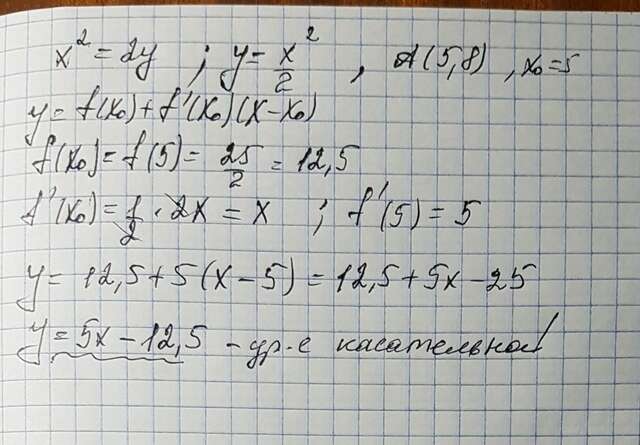 x² = 2y ; y = x²/2 , A(5,8) , x₀=5
y = f(x₀) + f'(x₀)(x-x₀)
f(x₀) = f(5) = 25/2 = 12,5
f'(x₀) = 1/2 · 2x = x ; f'(5) = 5
y = 12,5 + 5(x-5) = 12,5 + 5x - 25
y = 5x - 12,5 - ур-е касательной